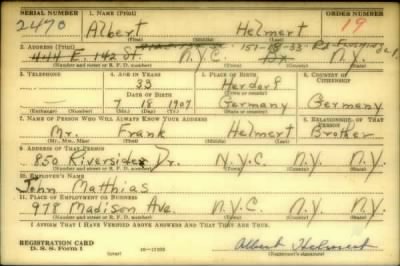 SERIAL NUMBER 1. NAME (Print) ORDER NUMBER
2470 Albert Helmert 19
(First) (Middle) (Last)
2. ADDRESS (Print) 151-18-33- Rd Flushing
444 E. 142 St. N.Y.C. Bx N.Y.
(Number and street or R. F. D. number) (Town) (County) (State)
3. TELEPHONE 4. AGE IN YEARS 5. PLACE OF BIRTH 6. COUNTRY OF CITIZENSHIP
33 Herdorf
DATE OF BIRTH (Town or county)
7 18 1907 Germany Germany
(Exchange) (Number) (Mo.) (Day) (Yr.) (State or country)
7. NAME OF PERSON WHO WILL ALWAYS KNOW YOUR ADDRESS 8. RELATIONSHIP OF THAT PERSON
Mr. Frank Helmert Brother
(Mr., Mrs., Miss) (First) (Middle) (Last)
9. ADDRESS OF THAT PERSON
850 Riverside Dr. N.Y.C. N.Y. N.Y.
(Number and street or R. F. D. number) (Town) (County) (State)
10. EMPLOYER'S NAME
John Matthias
11. PLACE OF EMPLOYMENT OR BUSINESS
978 Madison Ave. N.Y.C. N.Y. N.Y.
(Number and street or R. F. D. number) (Town) (County) (State)
I AFFIRM THAT I HAVE VERIFIED ABOVE ANSWERS AND THAT THEY ARE TRUE.
REGISTRATION CARD
D. S. S. Form 1 (over) Albert Helmert